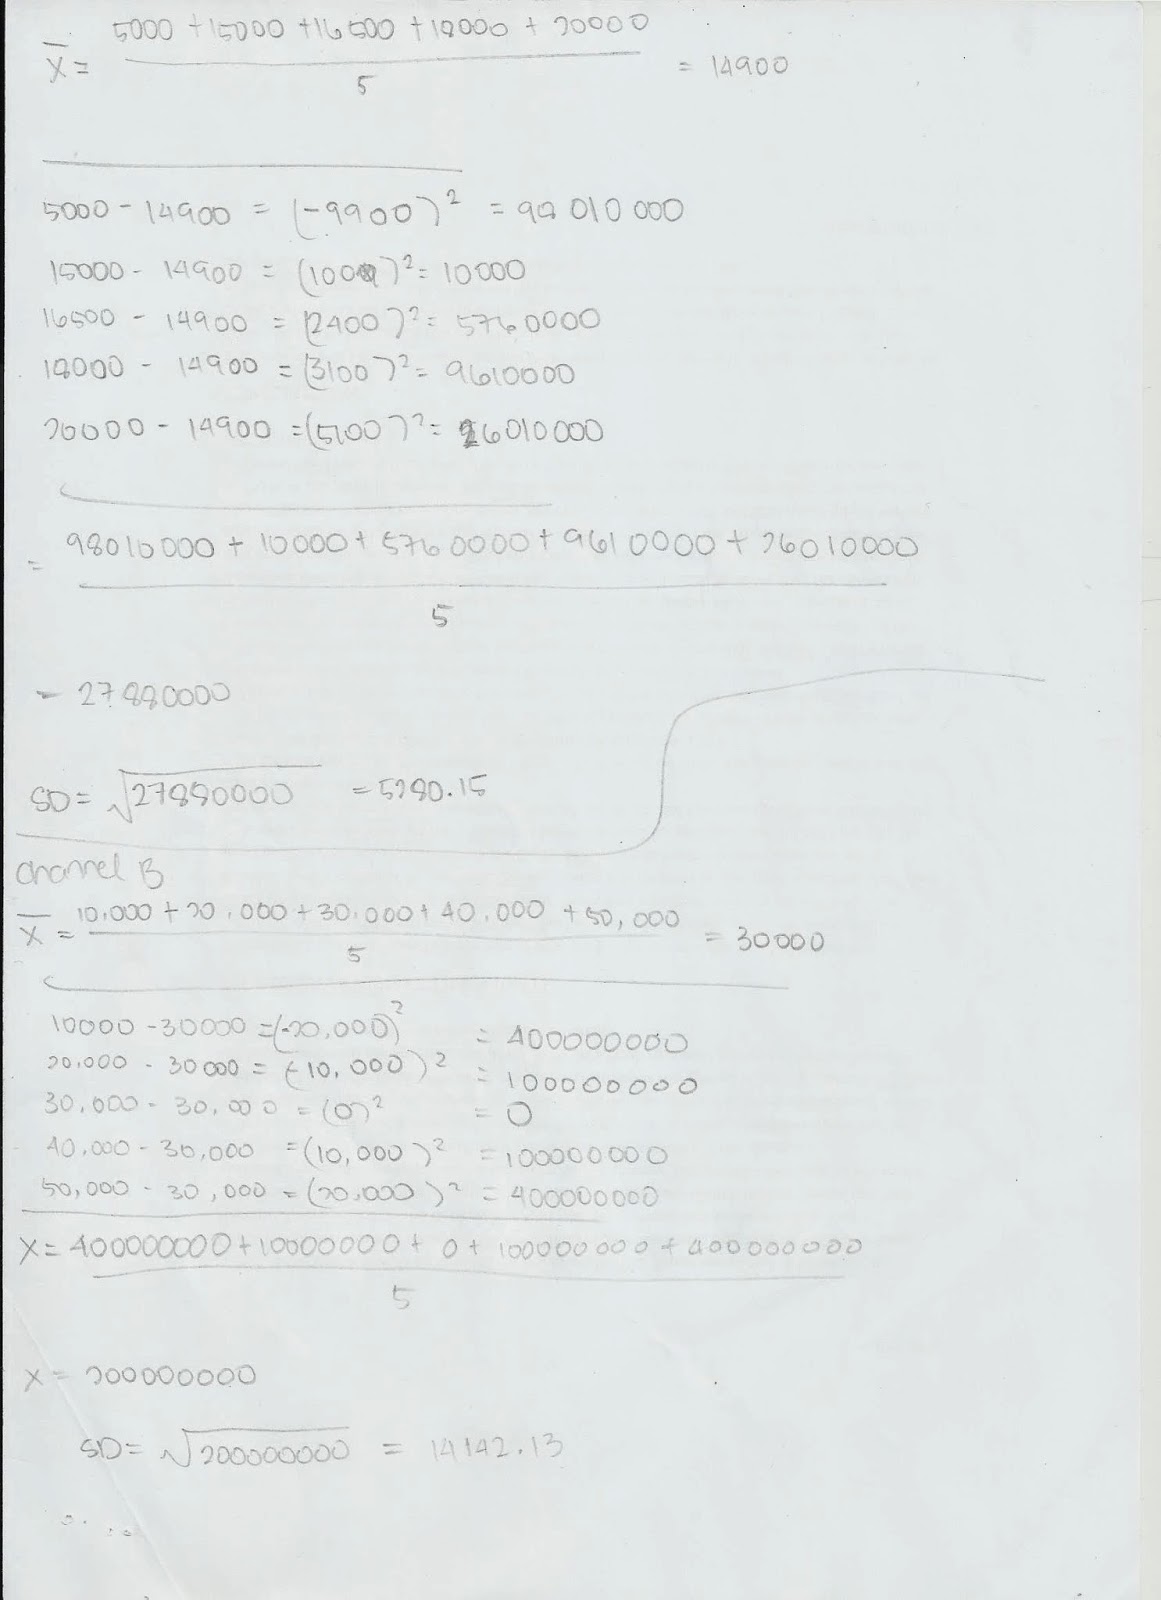 5000 + 15000 + 16500 + 18000 + 20000
X̄ = 5 = 14900
5000 - 14900 = (-9900)² = 98010 000
15000 - 14900 = (100)² = 10000
16500 - 14900 = (2400)² = 5760000
18000 - 14900 = (3100)² = 9610000
20000 - 14900 = (5100)² = 26010000
= 98010000 + 10000 + 5760000 + 9610000 + 26010000
5
= 27880000
SD = √27880000 = 5280.15
Channel B
10,000 + 20,000 + 30,000 + 40,000 + 50,000
X̄ = 5 = 30000
10000 - 30000 = (-20,000)² = 400000000
20,000 - 30000 = (-10,000)² = 100000000
30,000 - 30,000 = (0)² = 0
40,000 - 30,000 = (10,000)² = 100000000
50,000 - 30,000 = (20,000)² = 400000000
X = 400000000 + 10000000 + 0 + 100000000 + 400000000
5
X = 200000000
SD = √200000000 = 14142.13